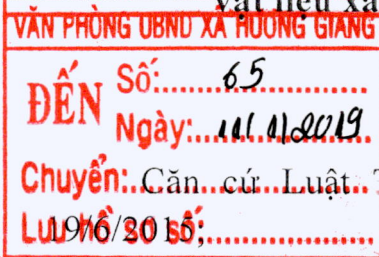 vật liệu xâ
VĂN PHÒNG UBND XÃ HƯƠNG GIANG
ĐẾN Số: 65
Ngày: 11/1/2019
Chuyển: Căn cứ Luật T
Lưu hồ sơ số;
19/6/2015;